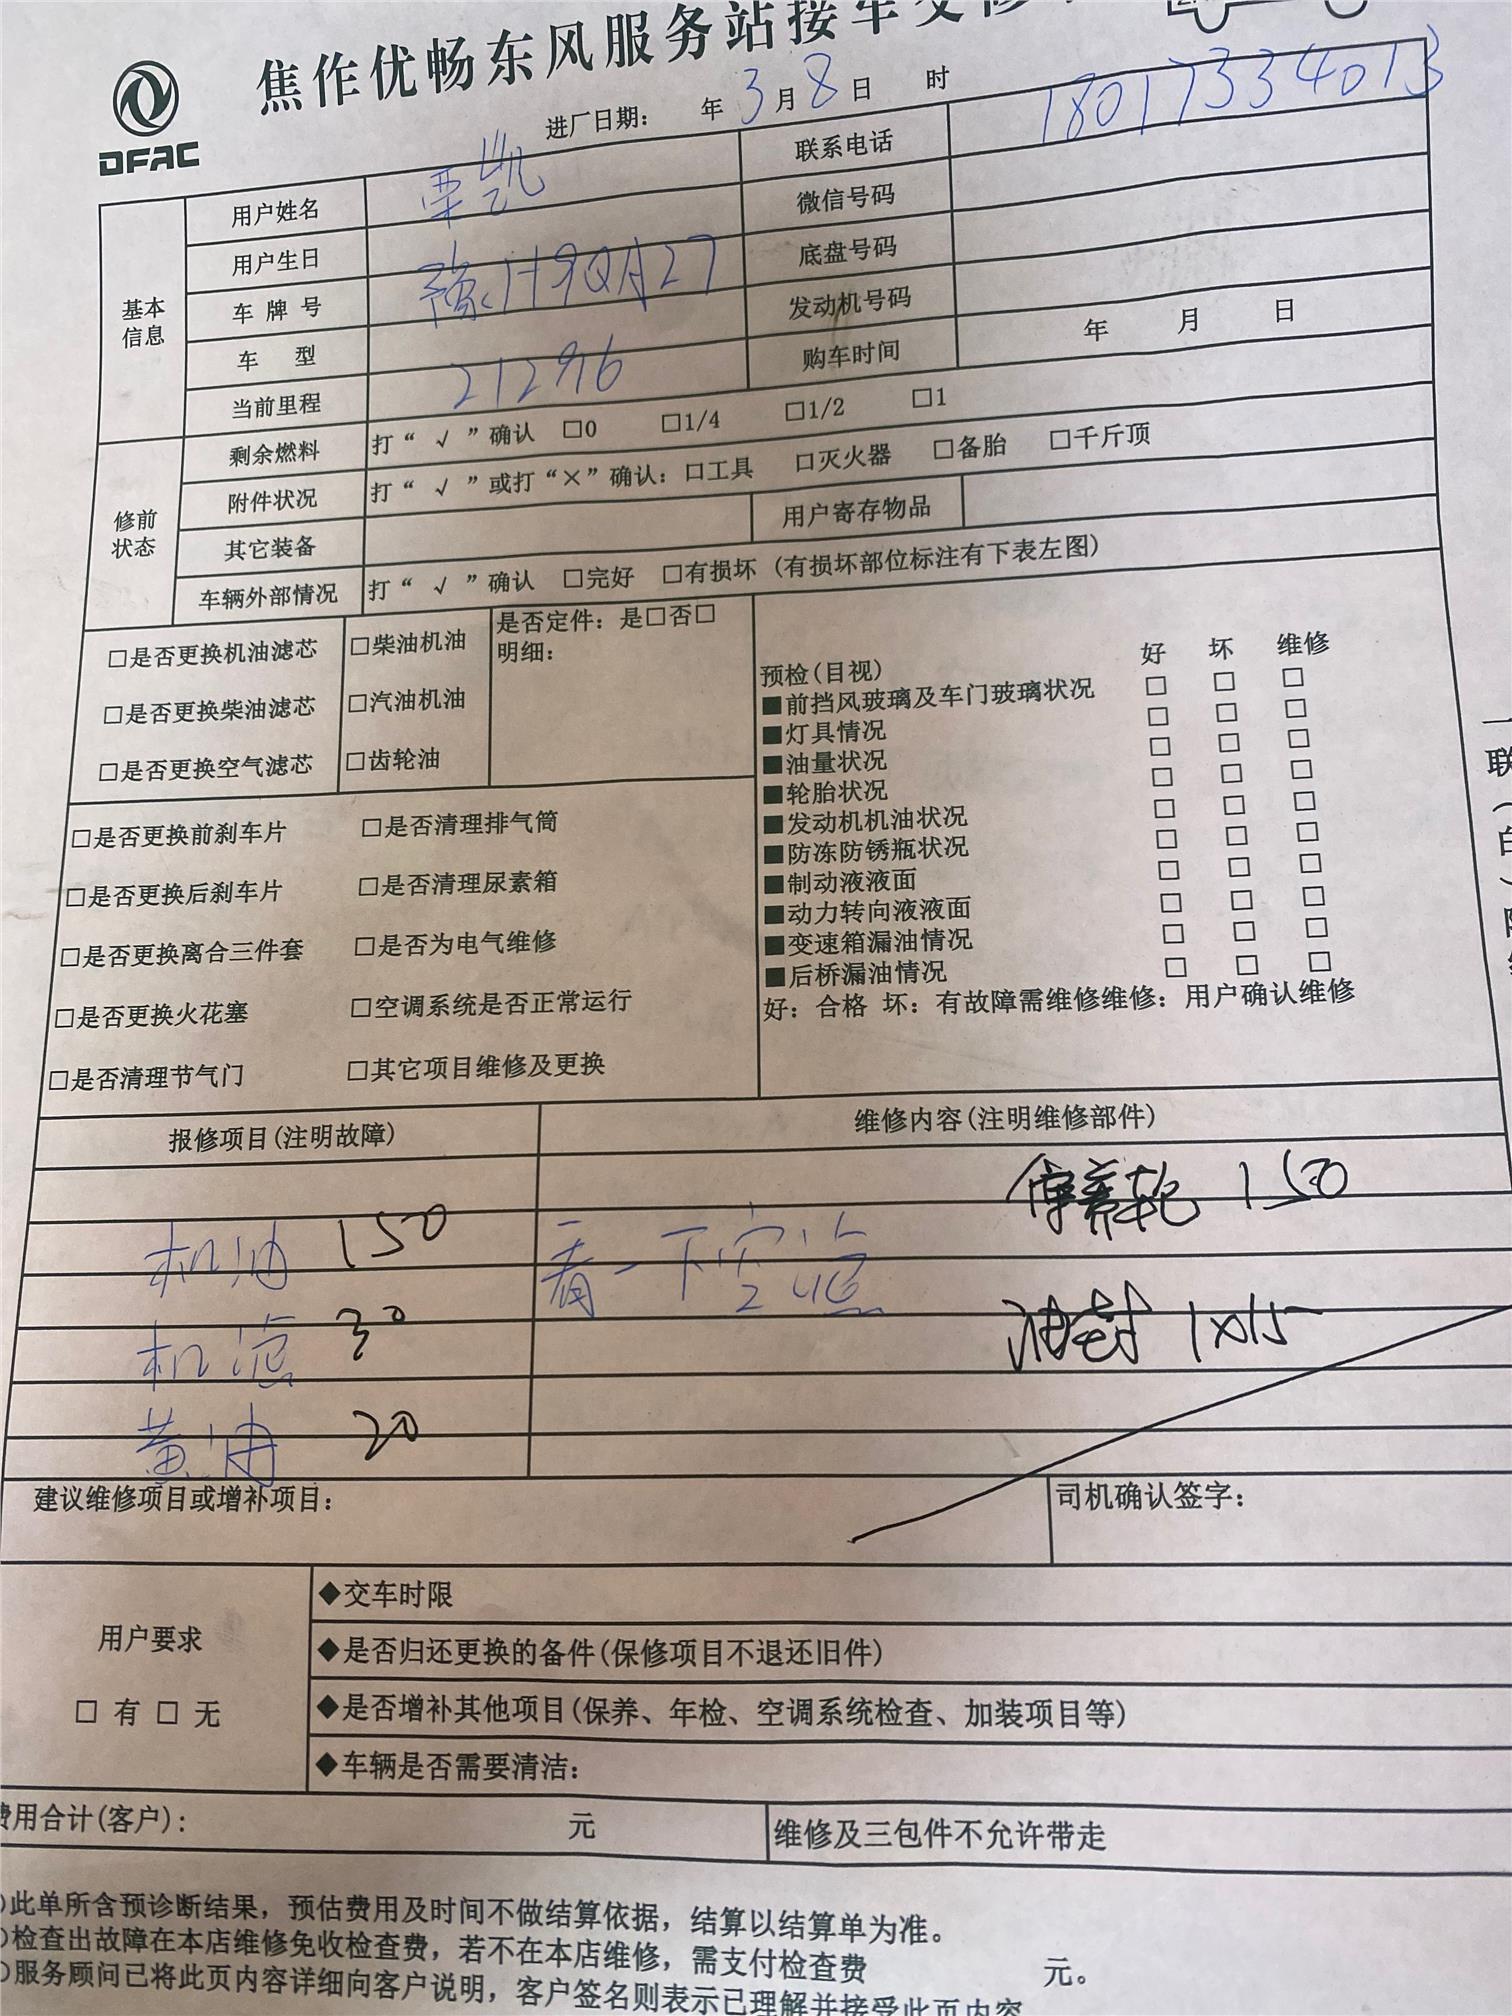 焦作优畅东风服务站接车交修
DFAC
进厂日期： 年 3 月 8 日 时
基本信息
用户姓名 栗凯 联系电话 18017334013
用户生日 微信号码
车牌号 豫H9QA27 底盘号码
车型 发动机号码
当前里程 21296 购车时间 年 月 日
修前状态
剩余燃料 打“√”确认 □0 □1/4 □1/2 □1
附件状况 打“√”或打“×”确认：口工具 口灭火器 □备胎 □千斤顶
其它装备 用户寄存物品
车辆外部情况 打“√”确认 □完好 □有损坏 (有损坏部位标注有下表左图)
□是否更换机油滤芯 □柴油机油
□是否更换柴油滤芯 □汽油机油
□是否更换空气滤芯 □齿轮油
是否定件：是□否□
明细：
□是否更换前刹车片 □是否清理排气筒
□是否更换后刹车片 □是否清理尿素箱
□是否更换离合三件套 □是否为电气维修
□是否更换火花塞 □空调系统是否正常运行
□是否清理节气门 □其它项目维修及更换
预检(目视) 好 坏 维修
■前挡风玻璃及车门玻璃状况 □ □ □
■灯具情况 □ □ □
■油量状况 □ □ □
■轮胎状况 □ □ □
■发动机机油状况 □ □ □
■防冻防锈瓶状况 □ □ □
■制动液液面 □ □ □
■动力转向液液面 □ □ □
■变速箱漏油情况 □ □ □
■后桥漏油情况 □ □ □
好：合格 坏：有故障需维修维修：用户确认维修
报修项目(注明故障) 维修内容(注明维修部件)
轮 150
机油 150 看一下空滤
机滤 30 油封 1×15
黄油 20
建议维修项目或增补项目： 司机确认签字：
用户要求
□ 有 □ 无
◆交车时限
◆是否归还更换的备件(保修项目不退还旧件)
◆是否增补其他项目(保养、年检、空调系统检查、加装项目等)
◆车辆是否需要清洁：
费用合计(客户)： 元 维修及三包件不允许带走
此单所含预诊断结果，预估费用及时间不做结算依据，结算以结算单为准。
检查出故障在本店维修免收检查费，若不在本店维修，需支付检查费 元。
服务顾问已将此页内容详细向客户说明，客户签名则表示已理解并接受此页内容
联
（
白
）